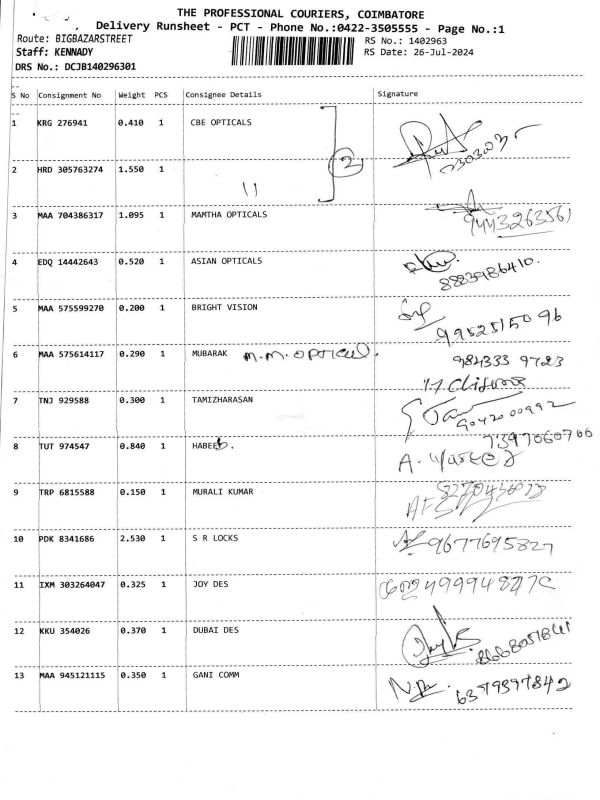 THE PROFESSIONAL COURIERS, COIMBATORE
Delivery Runsheet - PCT - Phone No.:0422-3505555 - Page No.:1
Route: BIGBAZARSTREET
RS No.: 1402963
Staff: KENNADY
RS Date: 26-Jul-2024
DRS No.: DCJB140296301
S No Consignment No Weight PCS Consignee Details Signature
1 KRG 276941 0.410 1 CBE OPTICALS
2 HRD 305763274 1.550 1 11
2
3 MAA 704386317 1.095 1 MAMTHA OPTICALS 9443263561
4 EDQ 14442643 0.520 1 ASIAN OPTICALS 8883986410.
5 MAA 575599270 0.200 1 BRIGHT VISION 9952515096
6 MAA 575614117 0.290 1 MUBARAK M.M. OPTICAL. 984333 9723
7 TNJ 929588 0.300 1 TAMIZHARASAN 9042000992
8 TUT 974547 0.840 1 HABEEB. 7397060766
9 TRP 6815588 0.150 1 MURALI KUMAR
10 PDK 8341686 2.530 1 S R LOCKS 9677695827
11 IXM 303264047 0.325 1 JOY DES
12 KKU 354026 0.370 1 DUBAI DES
13 MAA 945121115 0.350 1 GANI COMM 6379397842